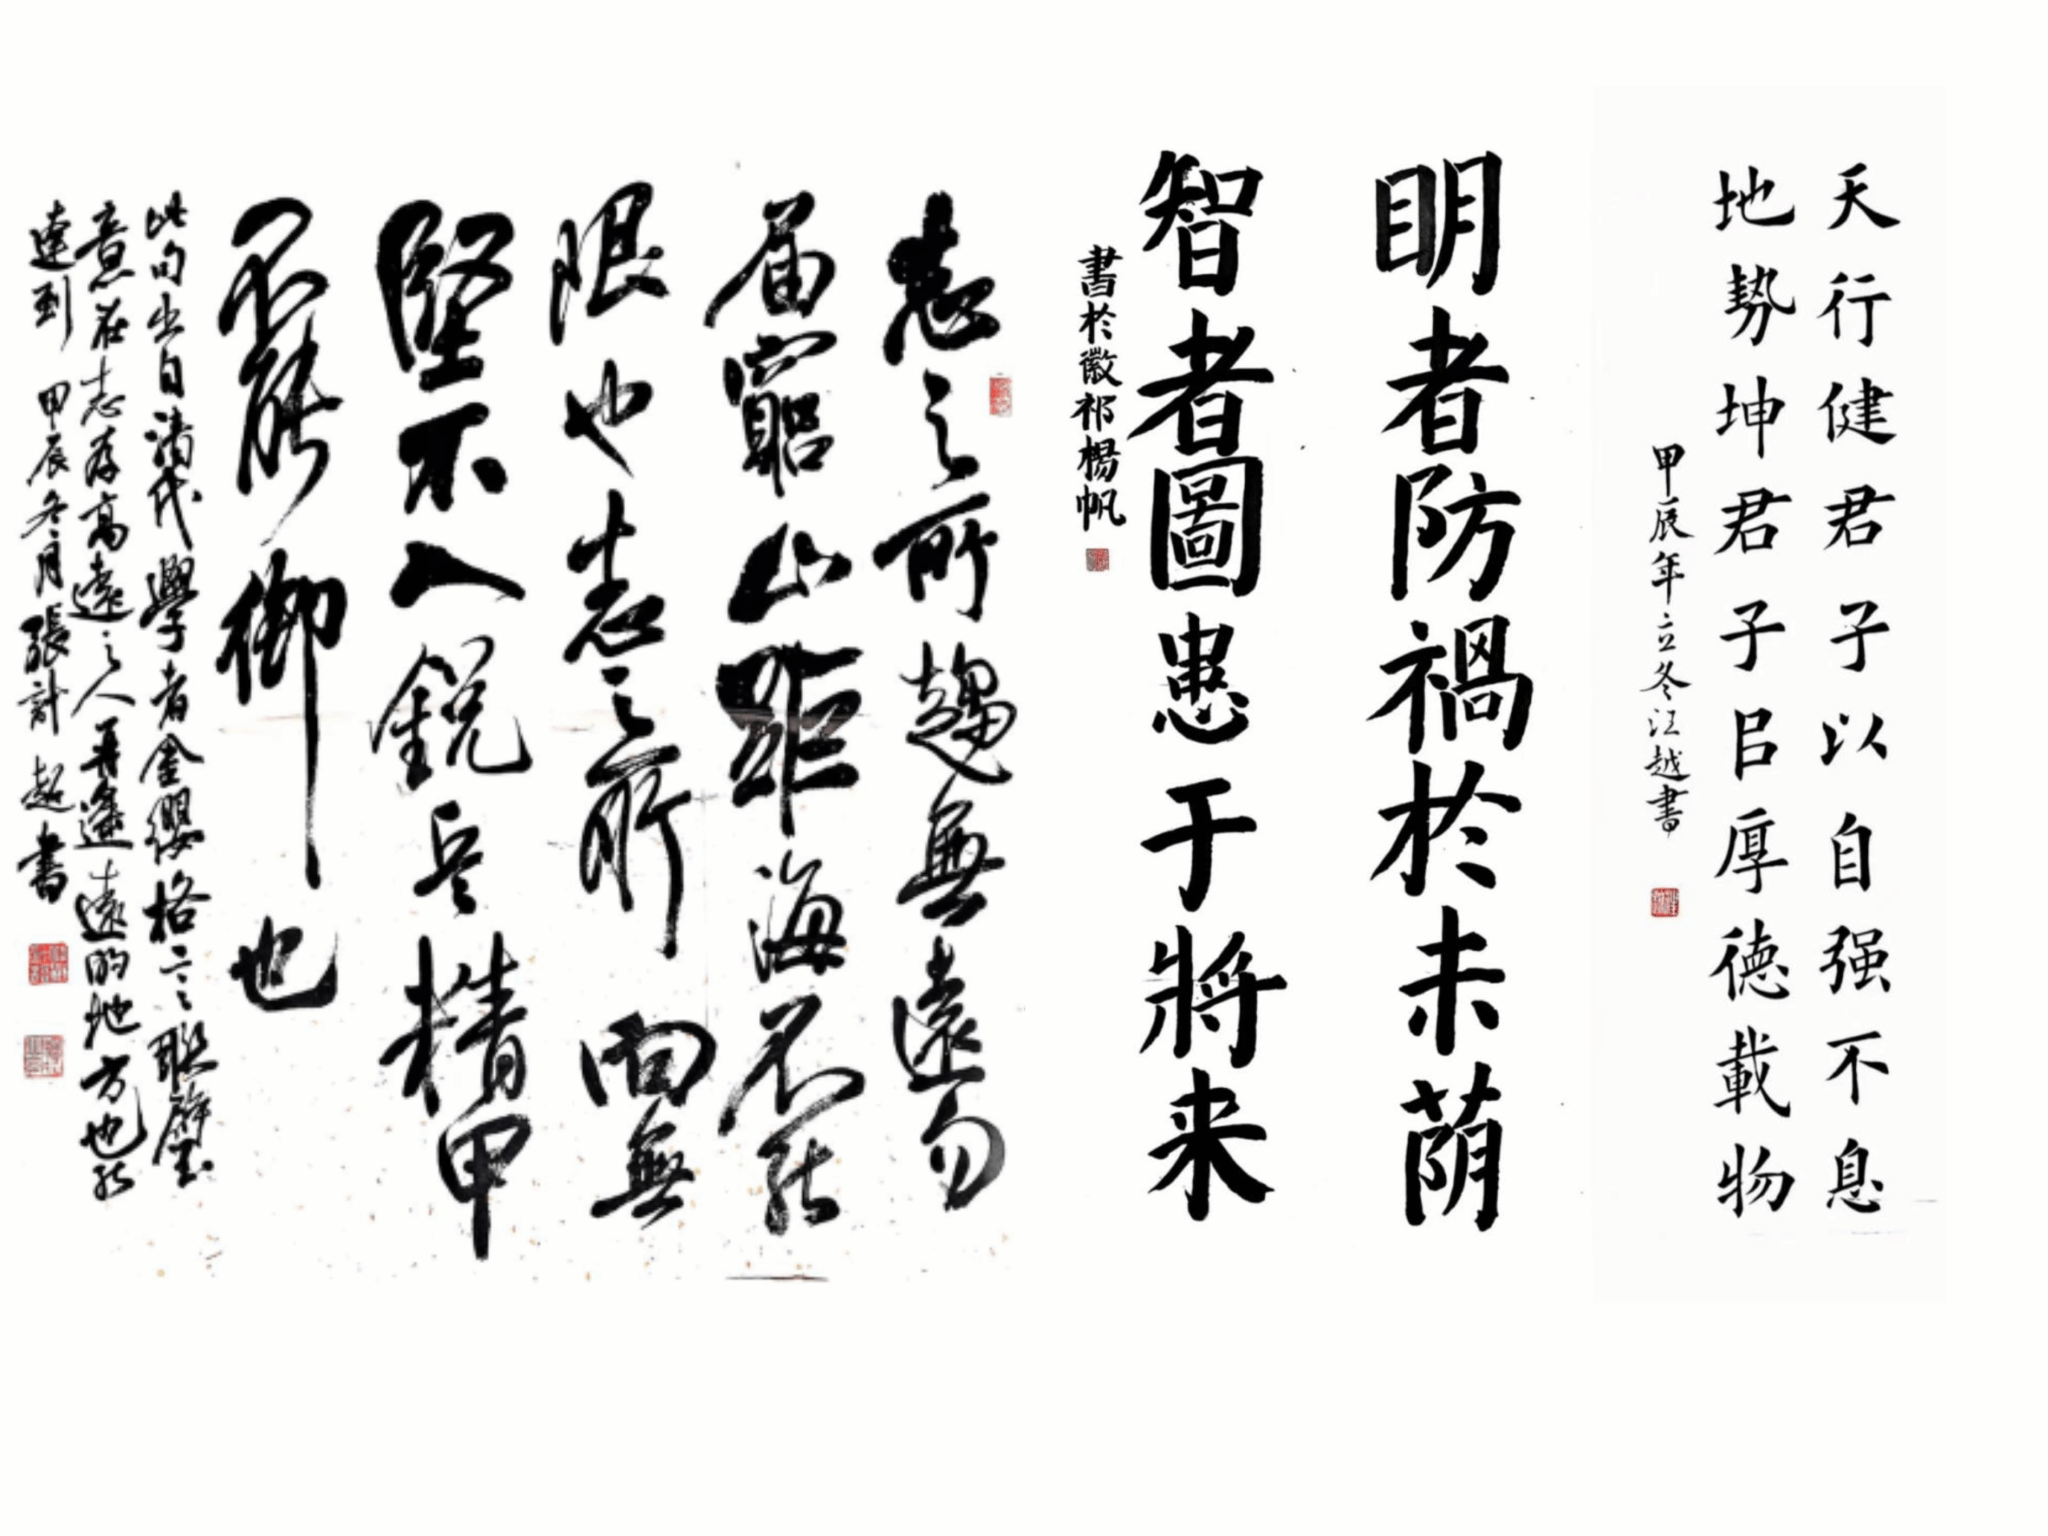 天行健君子以自强不息
地势坤君子㠯厚德載物
甲辰年立冬江越書
眀者防禍於未荫
智者圖患于將来
書於徽祁楊帆
志之所趨無遠勿
届窮山距海不能
限也志之所向無
堅不入銳兵精甲
不能御也
此句出自清代學者金纓格言之聯璧
意在志存高遠之人再遥遠的地方也能
達到 甲辰冬月張計超書